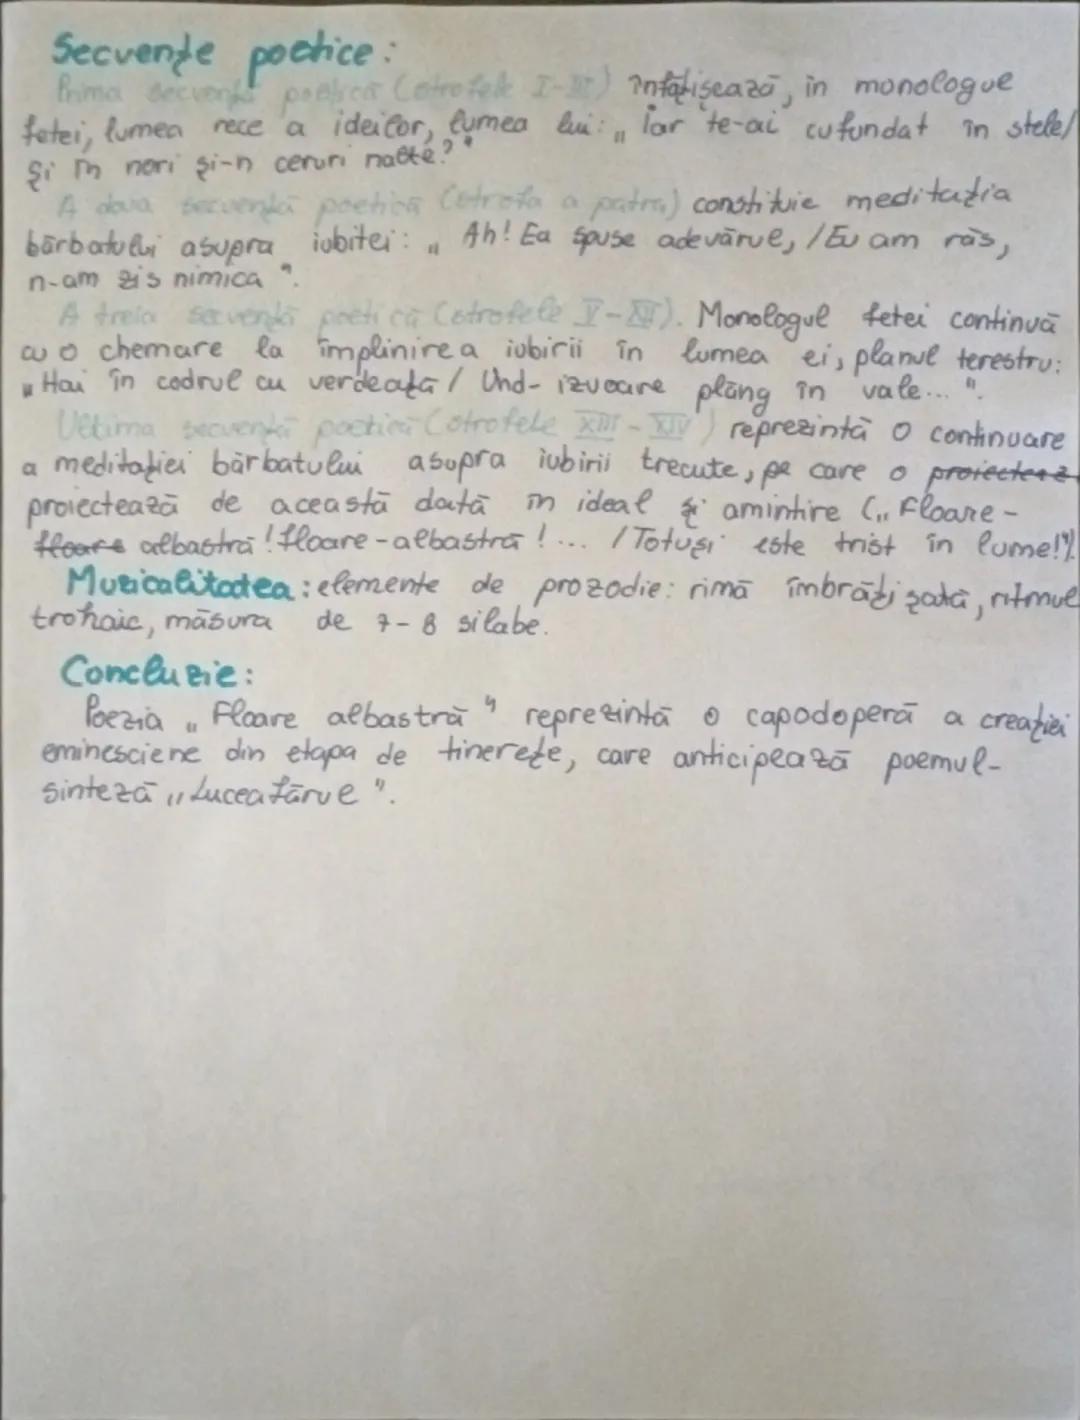 Secvențe poetice:
Prima secvență poetică (strofele I-III) înfățișează, în monologul
fetei, lumea rece a ideilor, lumea lui: „ Iar te-ai cufundat în stele/
Și în nori și-n ceruri nalte?"
A doua secvență poetică (strofa a patra) constituie meditația
bărbatului asupra iubitei: „ Ah! Ea spuse adevărul, /Eu am râs,
n-am zis nimica ".
A treia secvență poetică (strofele V-XII). Monologul fetei continuă
cu o chemare la împlinirea iubirii în lumea ei, planul terestru:
„ Hai în codrul cu verdeață / Und- izvoare plâng în vale... ".
Ultima secvență poetică (strofele XIII-XIV) reprezintă o continuare
a meditației bărbatului asupra iubirii trecute, pe care o proiectează
proiectează de această dată în ideal și amintire („ Floare-
floare albastră! floare-albastră! ... / Totuși este trist în lume!").
Muzicalitatea: elemente de prozodie: rimă îmbrățișată, ritmul
trohaic, măsura de 7-8 silabe.
Concluzie:
Poezia „ Floare albastră " reprezintă o capodoperă a creației
eminesciene din etapa de tinerețe, care anticipează poemul-
sinteză „ Luceafărul ".